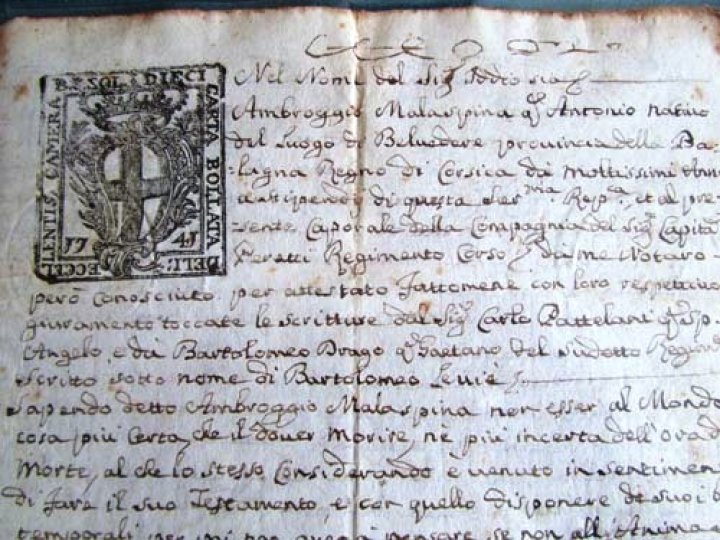 DE SOLI DIECI
CARTA BOLLATA
DELL'
ECCELLENTIS. CAMERA
17 41
Nel Nome del Sig.
Ambroggio Malaspina q. Antonio nativo
del Luogo di Belvedere provincia della Ba-
lagna Regno di Corsica da moltissimi Anni
a stipendj di questa Ser.ma Rep.a, et al pre-
sente Caporale della Compagnia del Sig. Capita.
Peretti Regimento Corso, da me Notaro
però Conosciuto per attestato fattomene con loro respettivo
giuramento toccate le scritture dal Sig. Carlo q.
Angelo, e da Bartolomeo Drago q. Gaetano del sudetto Regim
scritto sotto nome di Bartolomeo
Sapendo detto Ambroggio Malaspina non esser al Mondo
cosa più Certa, che il dover Morire, nè più incerta dell'ora d
Morte, al che lo stesso Considerando è venuto in sentimen
di fare il suo Testamento, e con quello disporre de suoi b
temporali per mai non se non all'Anima